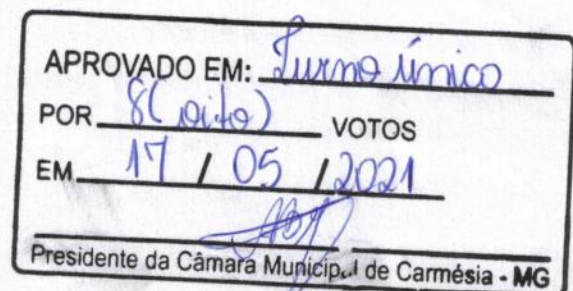 APROVADO EM: Turno único
POR 8( oito) VOTOS
EM 17 / 05 / 2021
Presidente da Câmara Municipal de Carmésia - MG